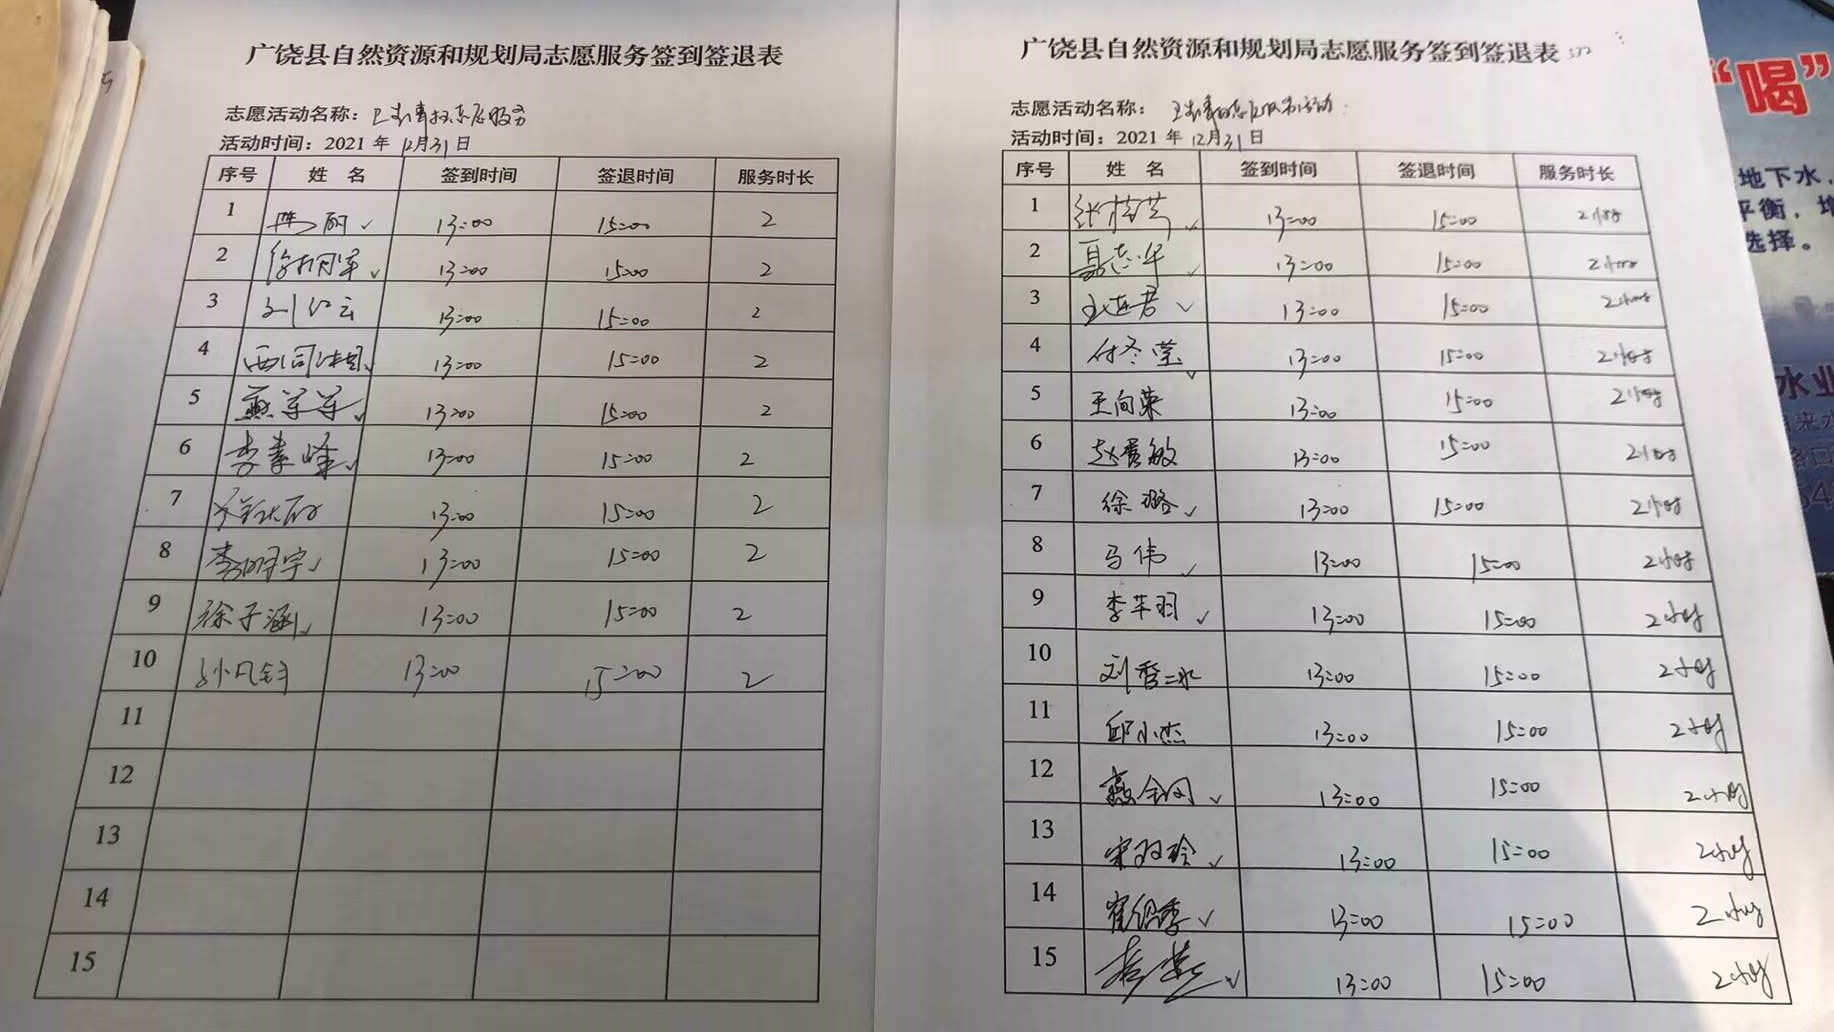 广饶县自然资源和规划局志愿服务签到签退表
志愿活动名称：卫生清扫志愿服务
活动时间：2021 年 12月31日
序号 姓 名 签到时间 签退时间 服务时长
1 13:00 15:00 2
2 13:00 15:00 2
3 刘红云 13:00 15:00 2
4 13:00 15:00 2
5 燕军军 13:00 15:00 2
6 李素峰 13:00 15:00 2
7 13:00 15:00 2
8 李明宇 13:00 15:00 2
9 徐子涵 13:00 15:00 2
10 13:00 15:00 2
11
12
13
14
15
广饶县自然资源和规划局志愿服务签到签退表
志愿活动名称：卫生清扫志愿服务活动
活动时间：2021 年 12月31日
序号 姓 名 签到时间 签退时间 服务时长
1 张桂芳 13:00 15:00 2小时
2 聂志华 13:00 15:00 2小时
3 13:00 15:00 2小时
4 付冬莹 13:00 15:00 2小时
5 王向荣 13:00 15:00 2小时
6 赵爱敏 13:00 15:00 2小时
7 徐璐 13:00 15:00 2小时
8 马伟 13:00 15:00 2小时
9 李芊羽 13:00 15:00 2小时
10 13:00 15:00 2小时
11 邱小杰 13:00 15:00 2小时
12 13:00 15:00 2小时
13 宋双玲 13:00 15:00 2小时
14 崔绍季 13:00 15:00 2小时
15 13:00 15:00 2小时
“喝”
地下水，
平衡，增
选择。
水业
来水